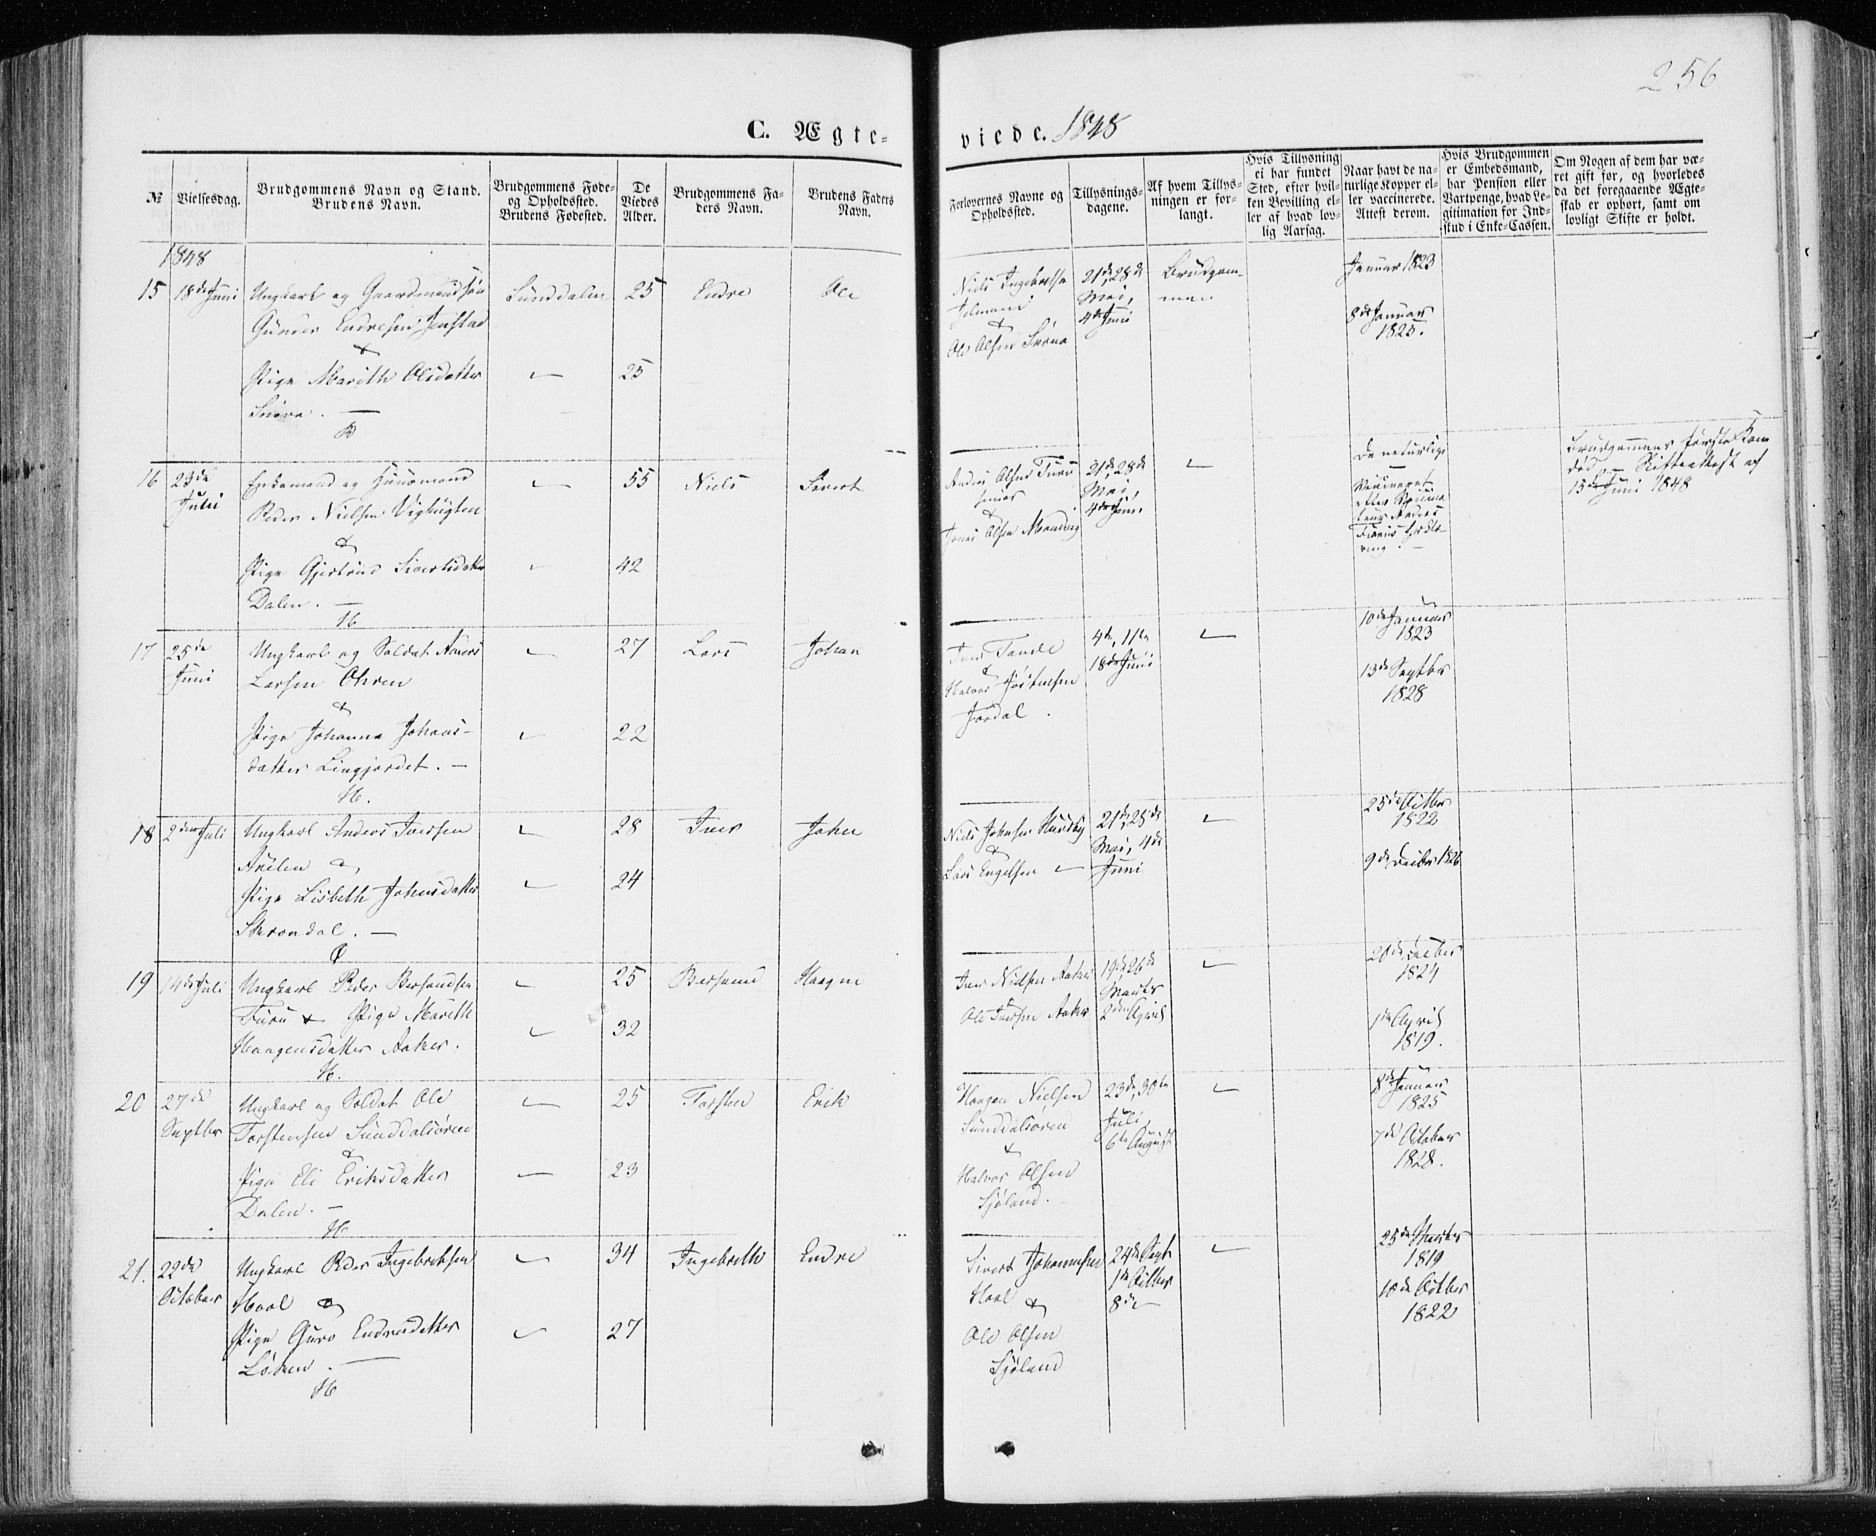 256
C. Ægte- viede. 1848
№
Vielsesdag.
Brudgommens Navn og Stand.
Brudens Navn.
Brudgommens Føde-
og Opholdssted.
Brudens Fødested.
De
Viedes
Alder.
Brudgommens Fa-
ders Navn.
Brudens Faders
Navn.
Forlovernes Navne og
Opholdssted.
Tillysnings-
dagene.
Af hvem Tillys-
ningen er for-
langt.
Hvis Tillysning
ei har fundet
Sted, efter hvil-
ken Bevilling el-
ler af hvad lov-
lig Aarsag.
Naar havt de na-
turlige Kopper el-
ler vaccinerede.
Attest derom.
Hvis Brudgommen
er Embedsmand,
har Pension eller
Vartpenge, hvad Le-
gitimation for Ind-
skud i Enke-Cassen.
Om Nogen af dem har væ-
ret gift før, og hvorledes
da det foregaaende Ægte-
skab er ophørt, samt om
lovligt Skifte er holdt.
1848
15
18de Juni
Ungkarl og Gaardmandsøn
Gunder Endresen Jenstad
&
Pige Marith Olsdatter
Sunddalen
25
25
Endre
Ole
Niels Ingebretsen
&
Ole Olsen
21de, 28de
Mai,
4de Juni
Brudgom-
men
Januar 1823
8de Januar
1825.
16
23de
Juli
Enkemand og Huusmand
Peder Nielsen
&
Pige Gjertrud Sivertsdatter
Dalen. —
H
55
42
Niels
Sivert
Anders Olsen Furu
&
Jonas Olsen
21de, 28de
Mai,
4de Juni
De naturlige
Brudgommens første Kone
død. Skifteattest af
15de Juni 1848
17
25de
Juni
Ungkarl og Soldat Anders
Larsen Ohren
&
Pige Johanna Johans-
datter Lingjordet. —
H.
27
22
Lars
Johan
Iver Tande
&
Halvor
Jordal.
4de, 11te
18de Juni
10de Januar
1823
13de Septbr
1828
18
2den Juli
Ungkarl Anders Iversen
&
Pige Lisbeth Johnsdatter
28
24
Iver
John
Niels Johnsen Huusby
&
Lars Engelsen —
21de, 28de
Mai, 4de
Juni
25de Octbr
1822
9de Decbr 1826
19
14de Juli
Ungkarl Peder Bersendsen
Furu & Pige Marith
Haagensdatter Aaker.
H.
25
32
Bersend
Haagen
Iver Nielsen Aaker
Ole Iversen Aaker
19de, 26de
Marts
2den April
20de Decbr
1824
1de April
1819.
20
27de
Septbr
Ungkarl og Soldat Ole
Torstensen Sunddalsøren
&
Pige Eli Eriksdatter
Dalen. —
H
25
23
Torsten
Erik
Haagen Nielsen
Sunddalsøren
&
Halvor Olsen
Sjøland. —
23de, 30te
Juli,
6te August
8de Januar
1825
7de October
1828.
21.
22de
October
Ungkarl Peder Ingebretsen
Hoel &
Pige Guro Endresdatter
Løken. —
H
34
27
Ingebreth
Endre
Sivert Johannesen
Hoel
&
Ole Olsen
Sjøland
24de Sept
1de Octbr
8de —
25de Marts
1819
18de Octbr
1822